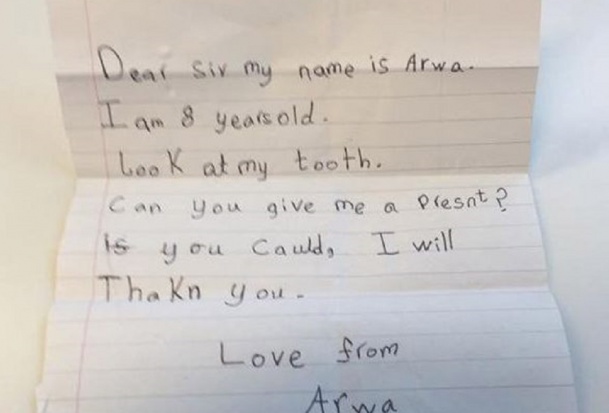 Dear Sir my name is Arwa.
I am 8 years old.
Look at my tooth.
Can you give me a Presnt?
is you Cauld, I will
Thakn you.
Love from
Arwa